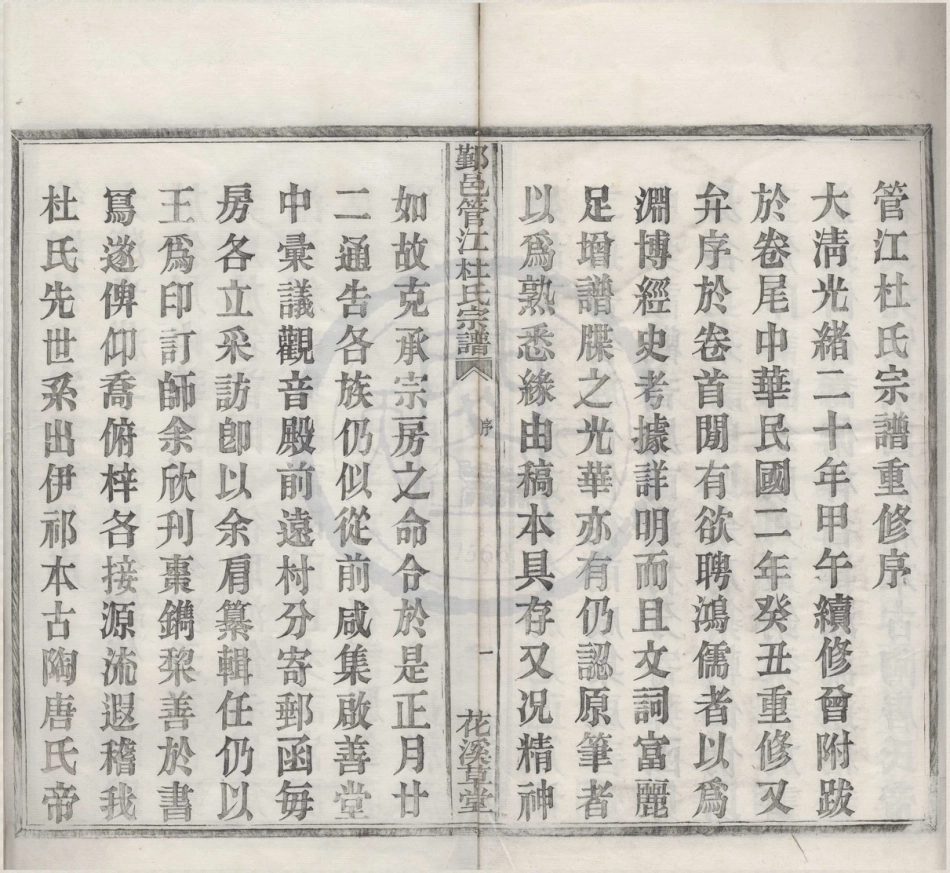 管江杜氏宗譜重修序
大淸光緒二十年甲午續修曾附跋
於卷尾中華民國二年癸丑重修又
弁序於卷首聞有欲聘鴻儒者以爲
淵博經史考據詳明而且文詞富麗
足增譜牒之光華亦有仍認原筆者
以爲熟悉緣由稿本具存又况精神
鄞邑管江杜氏宗譜
序
一
花溪草堂
如故克承宗房之命令於是正月廿
二通告各族仍似從前咸集啟善堂
中彙議觀音殿前遠村分寄郵函每
房各立采訪卽以余肩纂輯任仍以
王爲印訂師余欣刋棗鐫棃善於書
寫遂俾仰喬俯梓各接源流遐稽我
杜氏先世系出伊祁本古陶唐氏帝